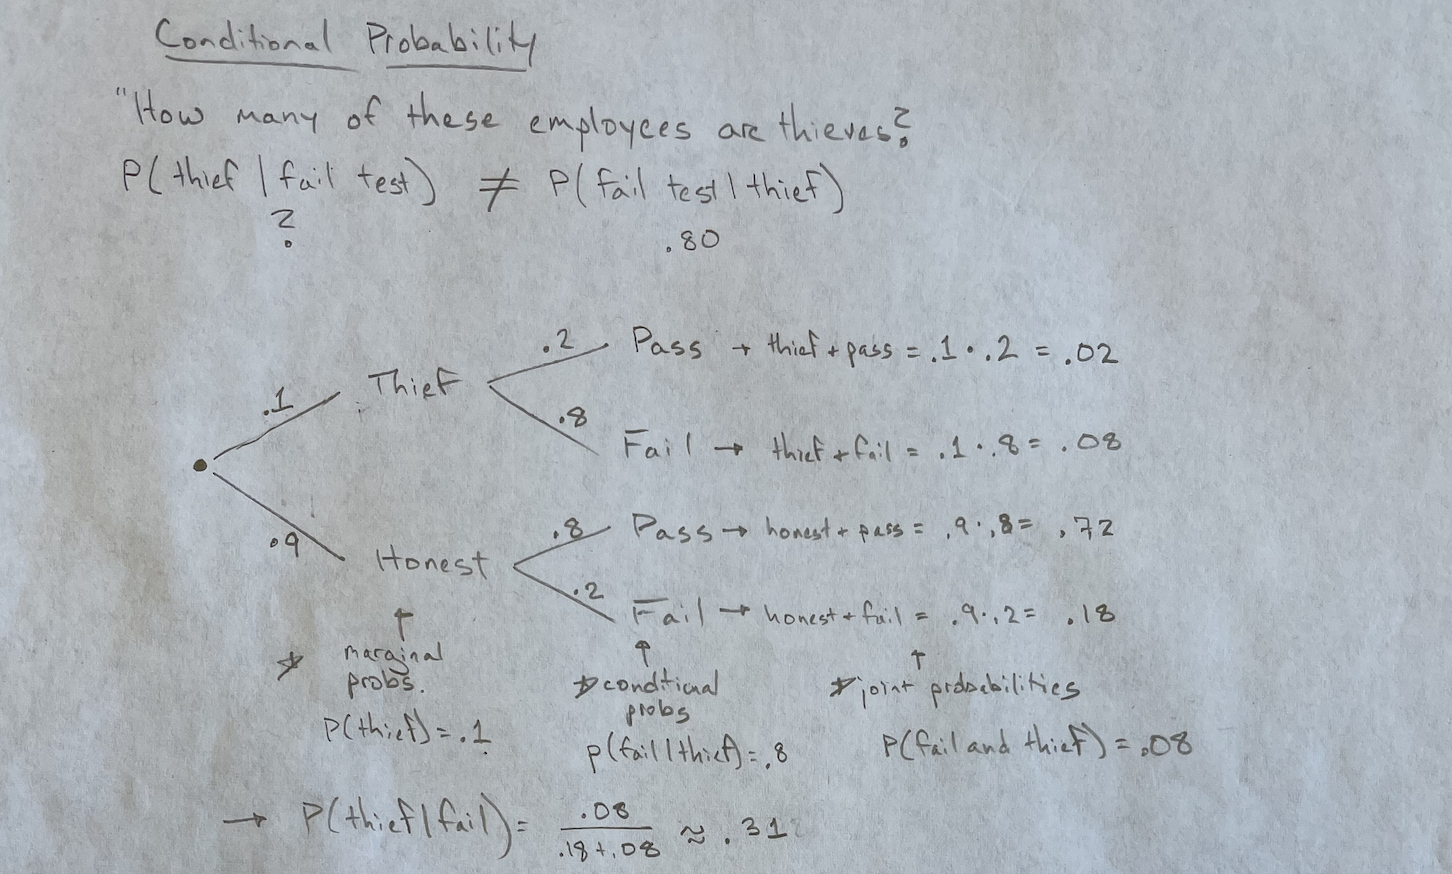 Conditional Probability
"How many of these employees are thieves?
P(thief | fail test) ≠ P(fail test | thief)
? .80
.2 Pass → thief + pass = .1 · .2 = .02
.1 Thief
.8 Fail → thief + fail = .1 · .8 = .08
.8 Pass → honest + pass = .9 · .8 = .72
.9 Honest
.2 Fail → honest + fail = .9 · .2 = .18
↑ marginal probs.
P(thief) = .1
↑ condtional probs
P(fail | thief) = .8
↑ joint probabilities
P(fail and thief) = .08
→ P(thief | fail) = .08 / .18 + .08 ≈ .31